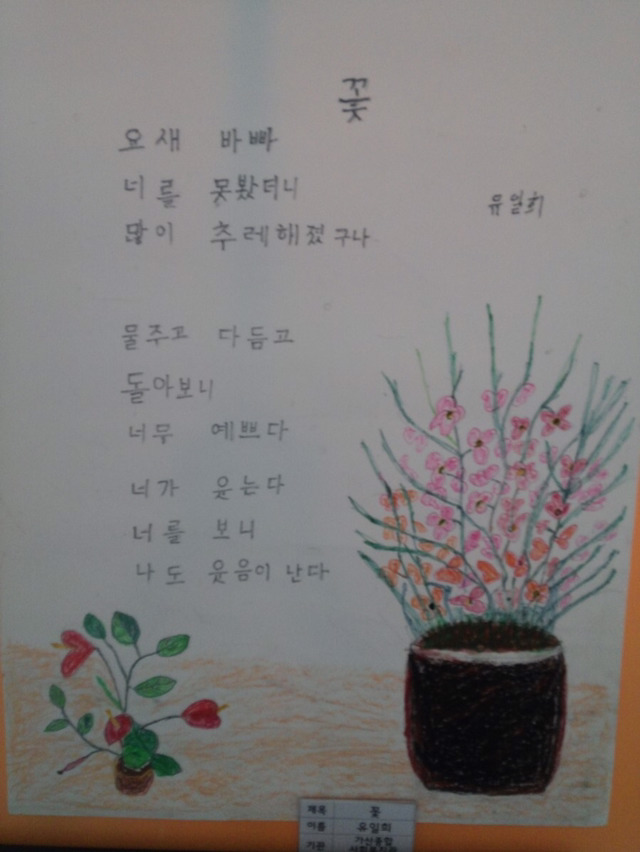 꽃
요새 바빠
너를 못봤더니
유일희
많이 추레해졌구나
물주고 다듬고
돌아보니
너무 예쁘다
너가 웃는다
너를 보니
나도 웃음이 난다
제목 꽃
이름 유일희
기관 가산종합